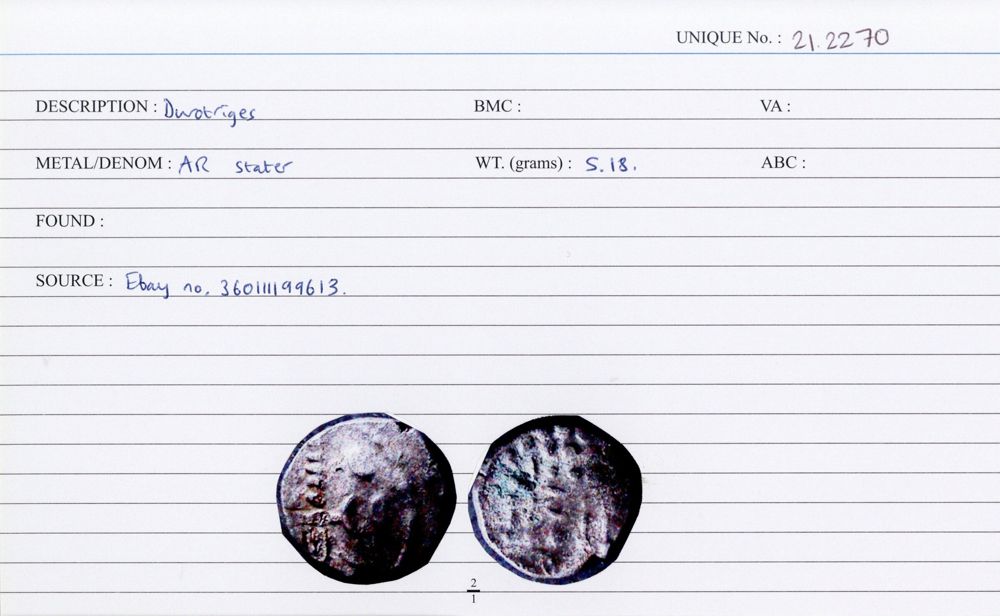 UNIQUE No. : 21.2270
DESCRIPTION : Durotriges BMC : VA :
METAL/DENOM : AR stater WT. (grams) : 5.18. ABC :
FOUND :
SOURCE : Ebay no. 360111199613.
2
1